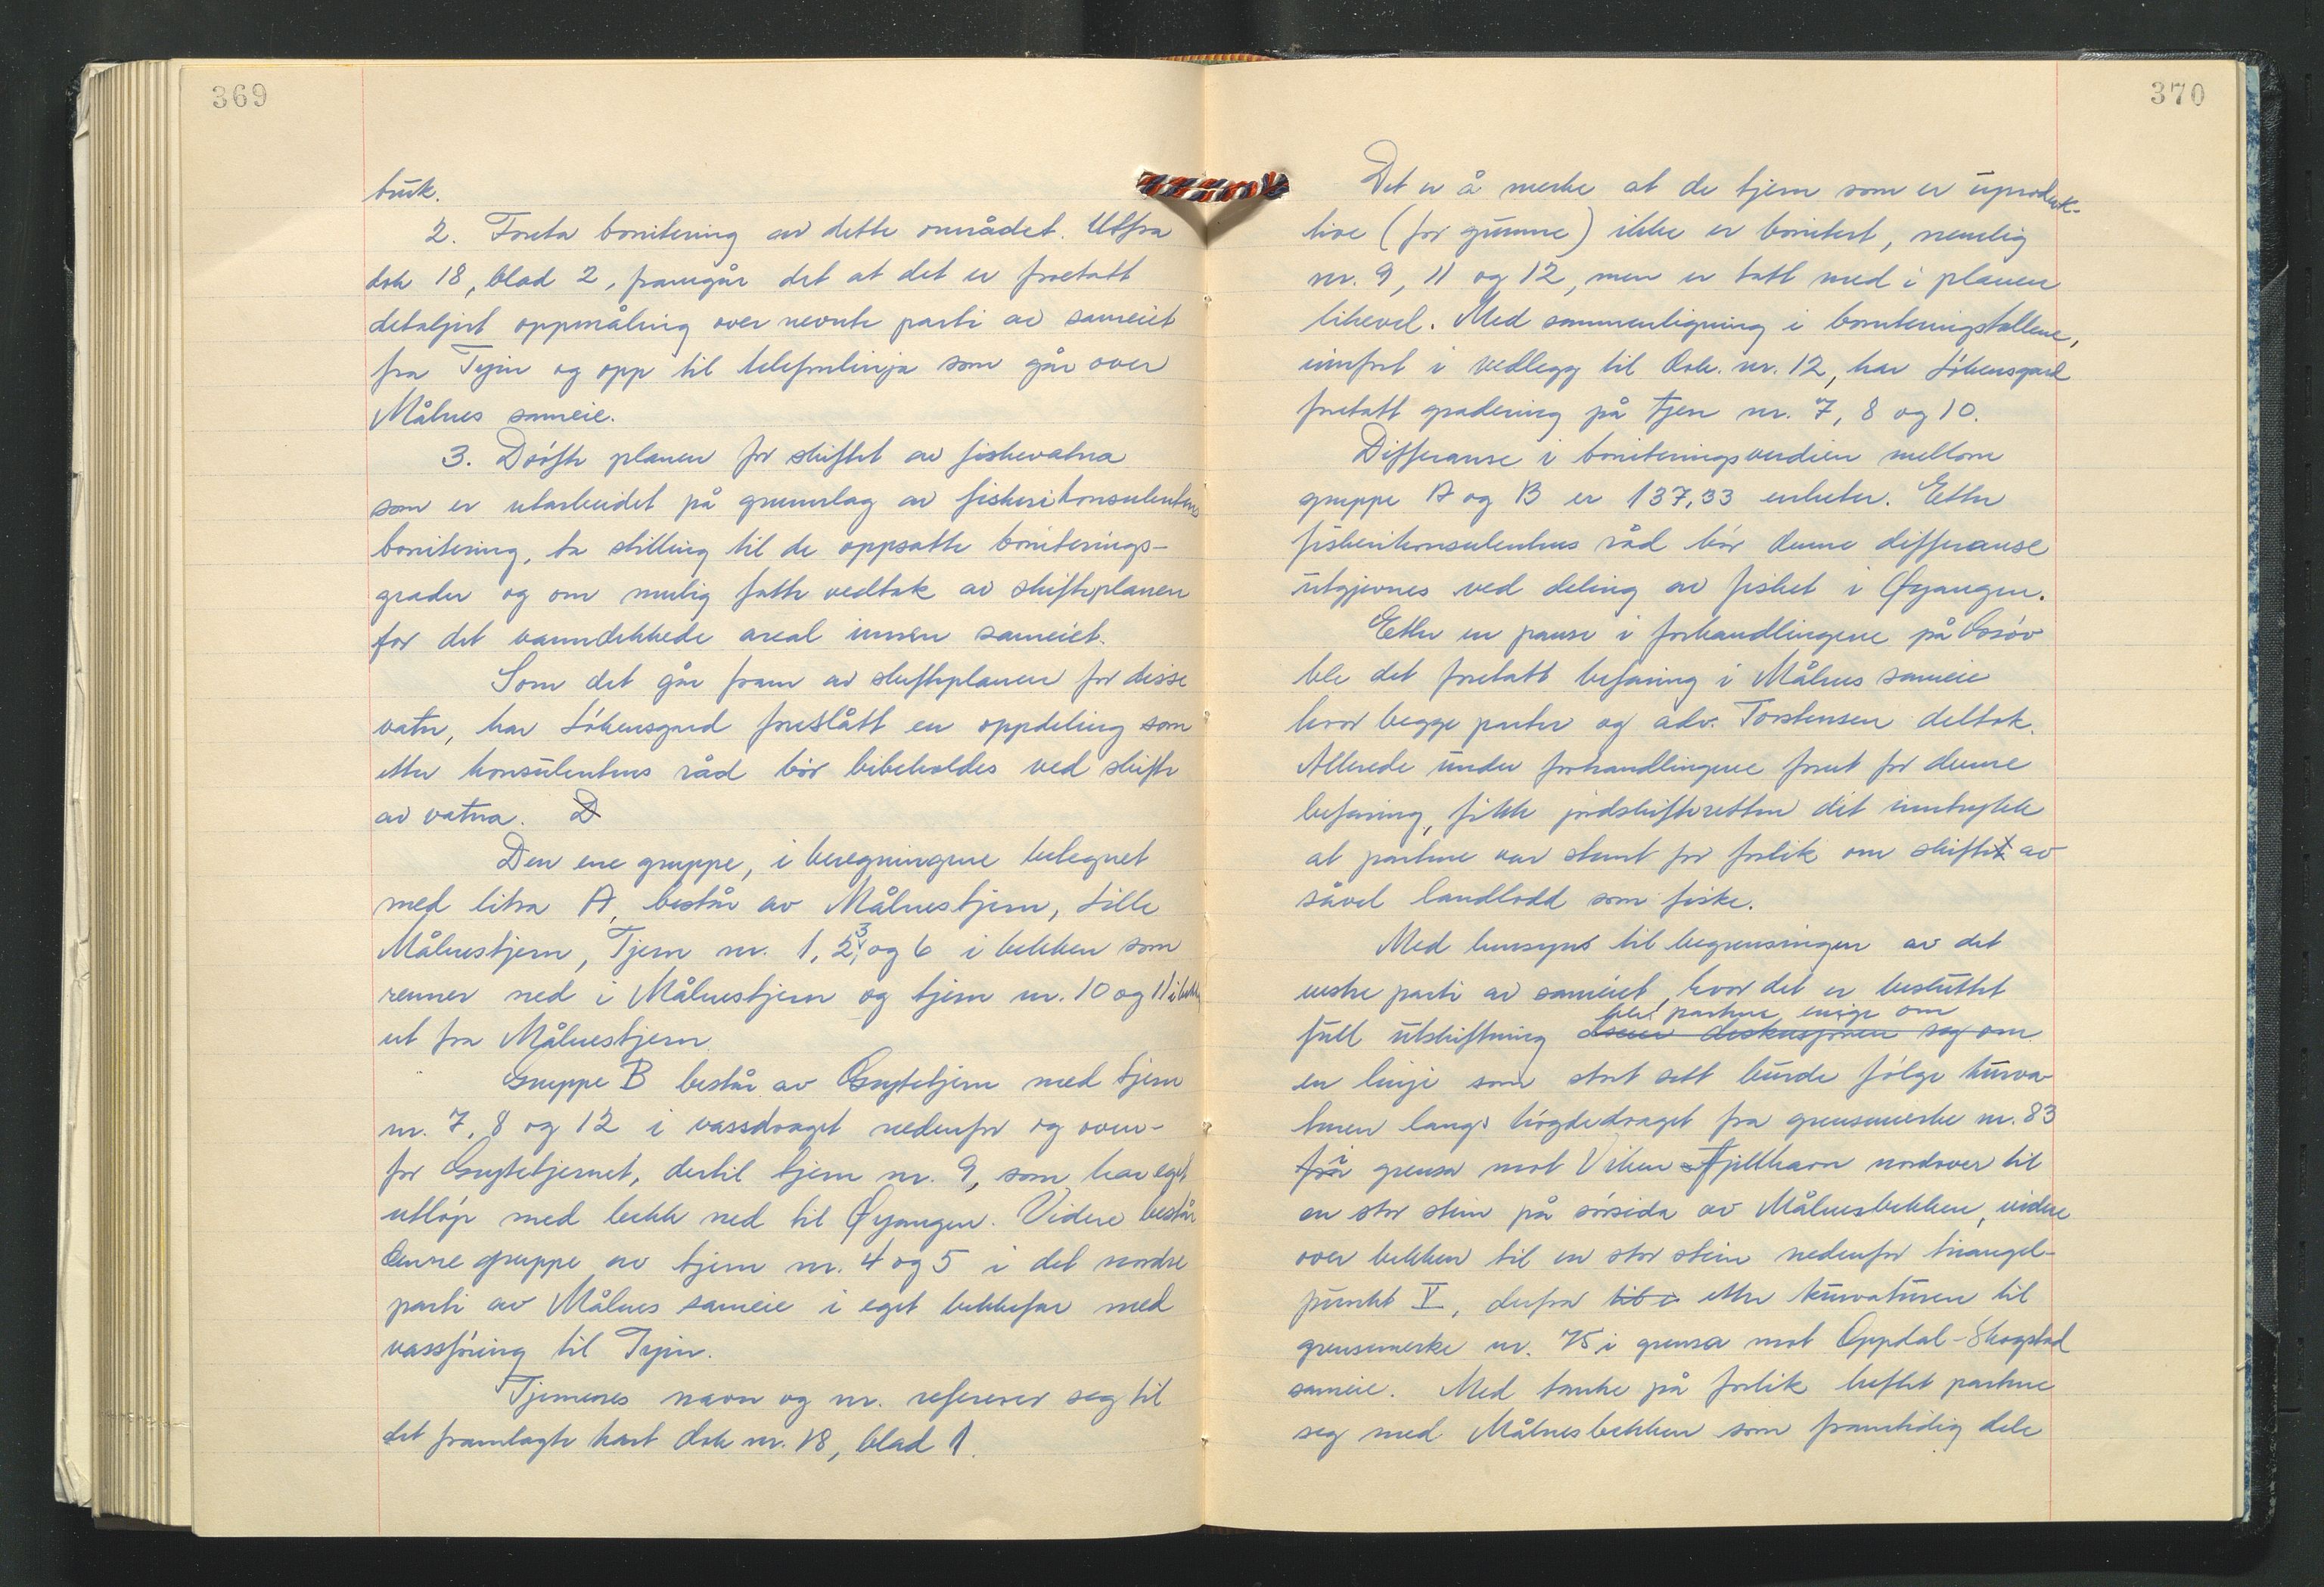 369
bruk.
2. Foreta bonitering av dette området. Utfra
dok 18, blad 2, framgår det at det er foretatt
detaljert oppmåling over nevnte parti av sameiet
fra Tyin og opp til telefonlinja som går over
Målnes sameie.
3. Drøfte planen for skiftet av fiskevatna
som er utarbeidet på grunnlag av fiskerikonsulentens
bonitering, ta stilling til de oppsatte boniterings-
grader og om mulig fatte vedtak av skifteplanen
for det vanndekkede areal innen sameiet.
Som det går fram av skifteplanen for disse
vatn, har Løkensgard foreslått en oppdeling som
etter konsulentens råd bør bibeholdes ved skifte
av vatna. D
Den ene gruppe, i beregningene betegnet
med litra A, består av Målnestjern, Lille
Målnestjern, Tjern nr. 1, 2, 3 og 6 i bekken som
renner ned i Målnestjern og tjern nr. 10 og 11 i bekk
ut fra Målnestjern.
Gruppe B består av Grytetjern med tjern
nr. 7, 8 og 12 i vassdraget nedenfor og oven-
for Grytetjernet, dertil tjern nr. 9, som har eget
utløp med bekk ned til Øyangen. Videre består
denne gruppe av tjern nr. 4 og 5 i det nordre
parti av Målnes sameie i eget bekkefar med
vassføring til Tyin.
Tjernenes navn og nr. refererer seg til
det framlagte kart dok nr. 18, blad 1.
370
Det er å merke at de tjern som er uproduk-
tive (for gunne) ikke er bonitert, nemlig
nr. 9, 11 og 12, men er tatt med i planen
likevel. Med sammenligning i boniteringstallene,
innført i vedlegg til dok. nr. 12, har Løkensgard
foretatt gradering på tjern nr. 7, 8 og 10.
Differanse i boniteringsverdien mellom
gruppe A og B er 137,33 enheter. Etter
fiskerikonsulentens råd bør denne differanse
utgjevnes ved deling av fisket i Øyangen.
Etter en pause i forhandlingene på Bosøv
ble det foretatt befaring i Målnes sameie
hvor begge parter og adv. Torstensen deltok.
Allerede under forhandlingene forut for denne
befaring, fikk jordskifteretten det inntrykk
at partene var stemt for forlik om skifte av
såvel landlodd som fiske.
Med hensyns til begrensningen av det
vestre parti av sameiet, hvor det er besluttet
blei partene enige om
full utskiftning dreiet diskusjonen seg om
en linje som stort sett burde følge kurva-
turen langs høgdedraget fra grensemerke nr. 83
i grensa mot Viken Fjellhavn nordover til
en stor stein på sørsida av Målnesbekken, videre
over bekken til en stor stein nedenfor triangel-
punkt V, derfra til i etter kurvaturen til
grensemerke nr. 75 i grensa mot Oppdal-Skogstad
sameie. Med tanke på forlik heftet partene
seg med Målnesbekken som framtidig dele